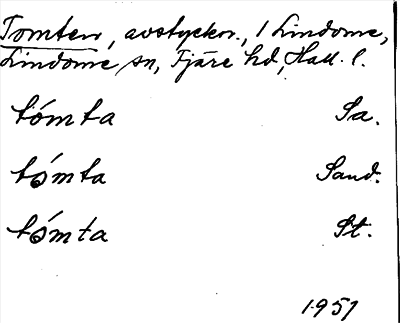 Tomten, avstyckn., 1 Lindome,
Lindome sn, Fjäre hd, Hall. l.
tómta Sa.
tómta Sand.
tómta St.
1951